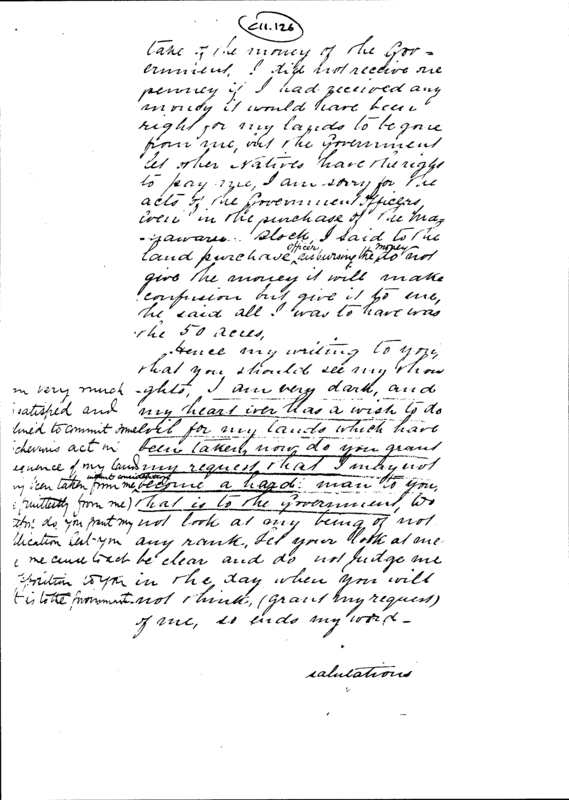 C11.126
take of the money of the Gov-
ernment, I did not receive one
penney if I had received any
money it would have been
right for my lands to be gone
from me, but the Government
let other Natives have the right
to pay me, I am sorry for the
acts of the Government Officers
even in the purchase of the
Block, I said to the
land purchase officer disbursing the money do not
give the money it will make
confusion but give it to me,
he said all I was to have was
the 50 acres,
Hence my writing to you,
that you should see my thou
ghts, I am very dark, and
my heart ever has a wish to do
evil for my lands which have
been taken, now do you grant
my request that I may not
become a hard man to you,
that is to the Government, Do
not look at my being of not
any rank, let your look at me
be clear and do not judge me
in the day when you will
not think, (grant my request)
of me, so ends my word -
salutations
m very much
satisfied and
ined to commit some
act in
equence of my lands
been taken from me
from me)
do you grant my
lest you
me cause to act
to you
t is to the Government